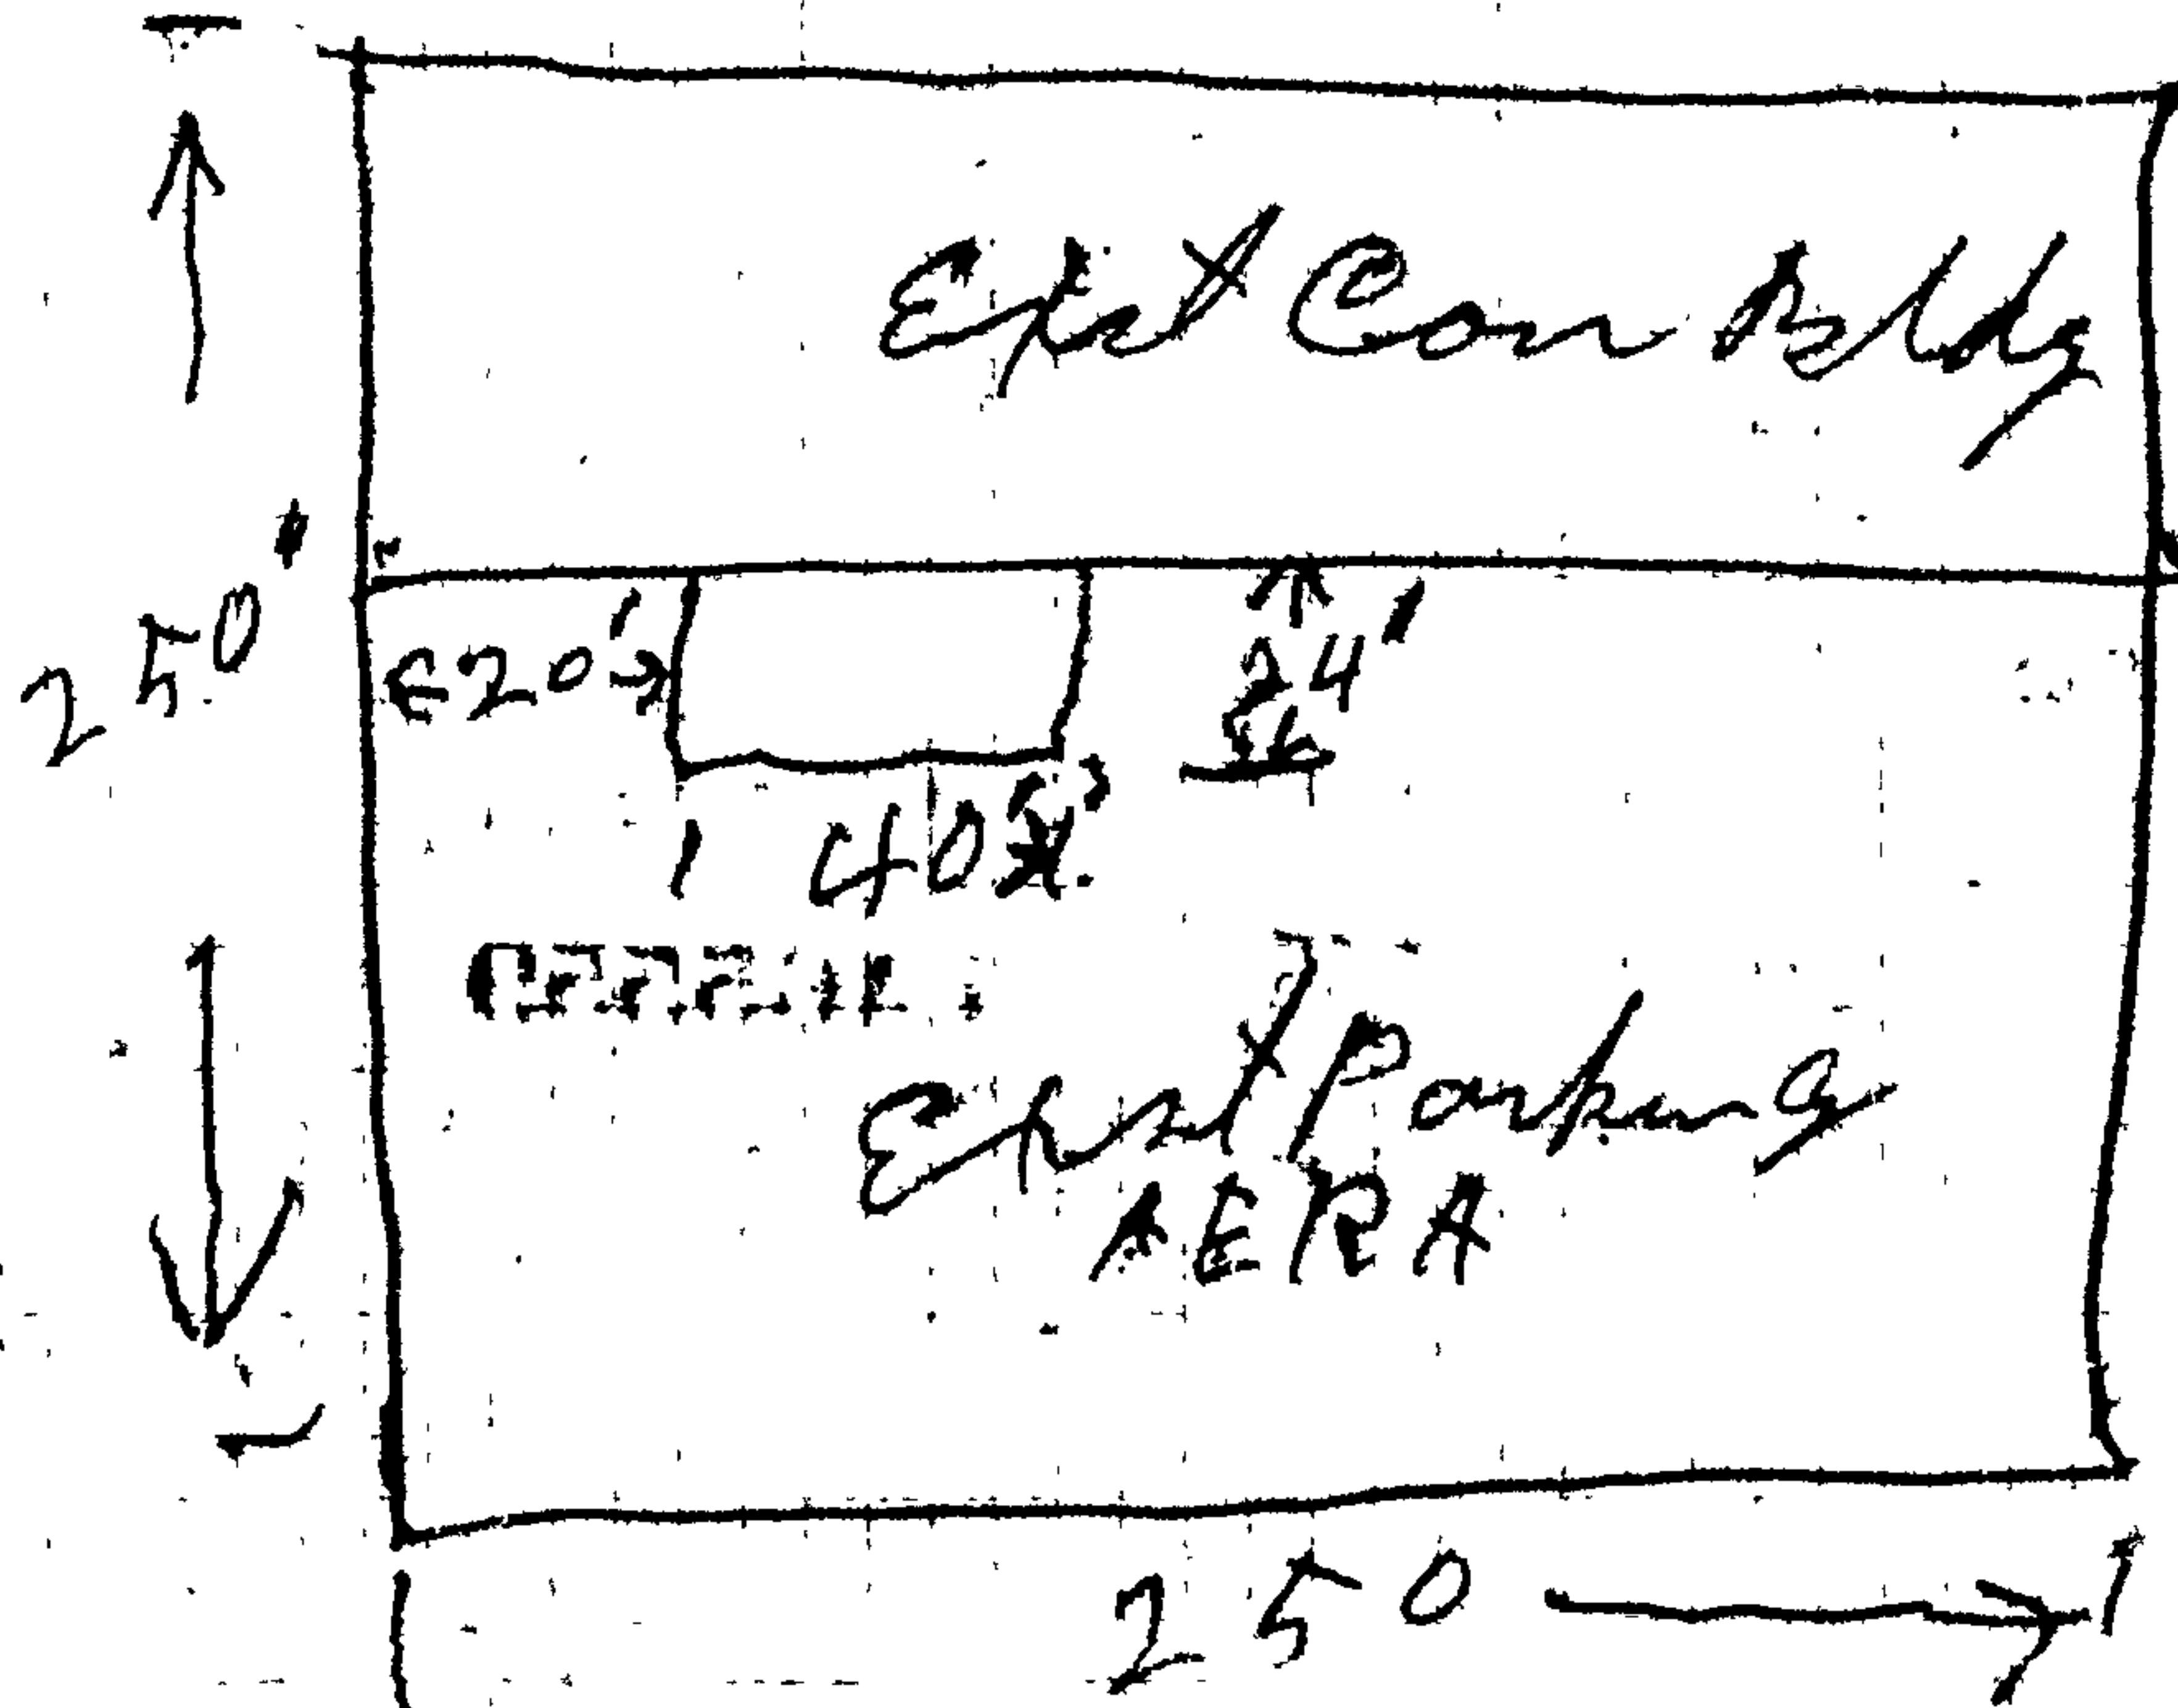 Exist Com Bldg
250'
20'
24'
40'
Exist Parking
AERA
250